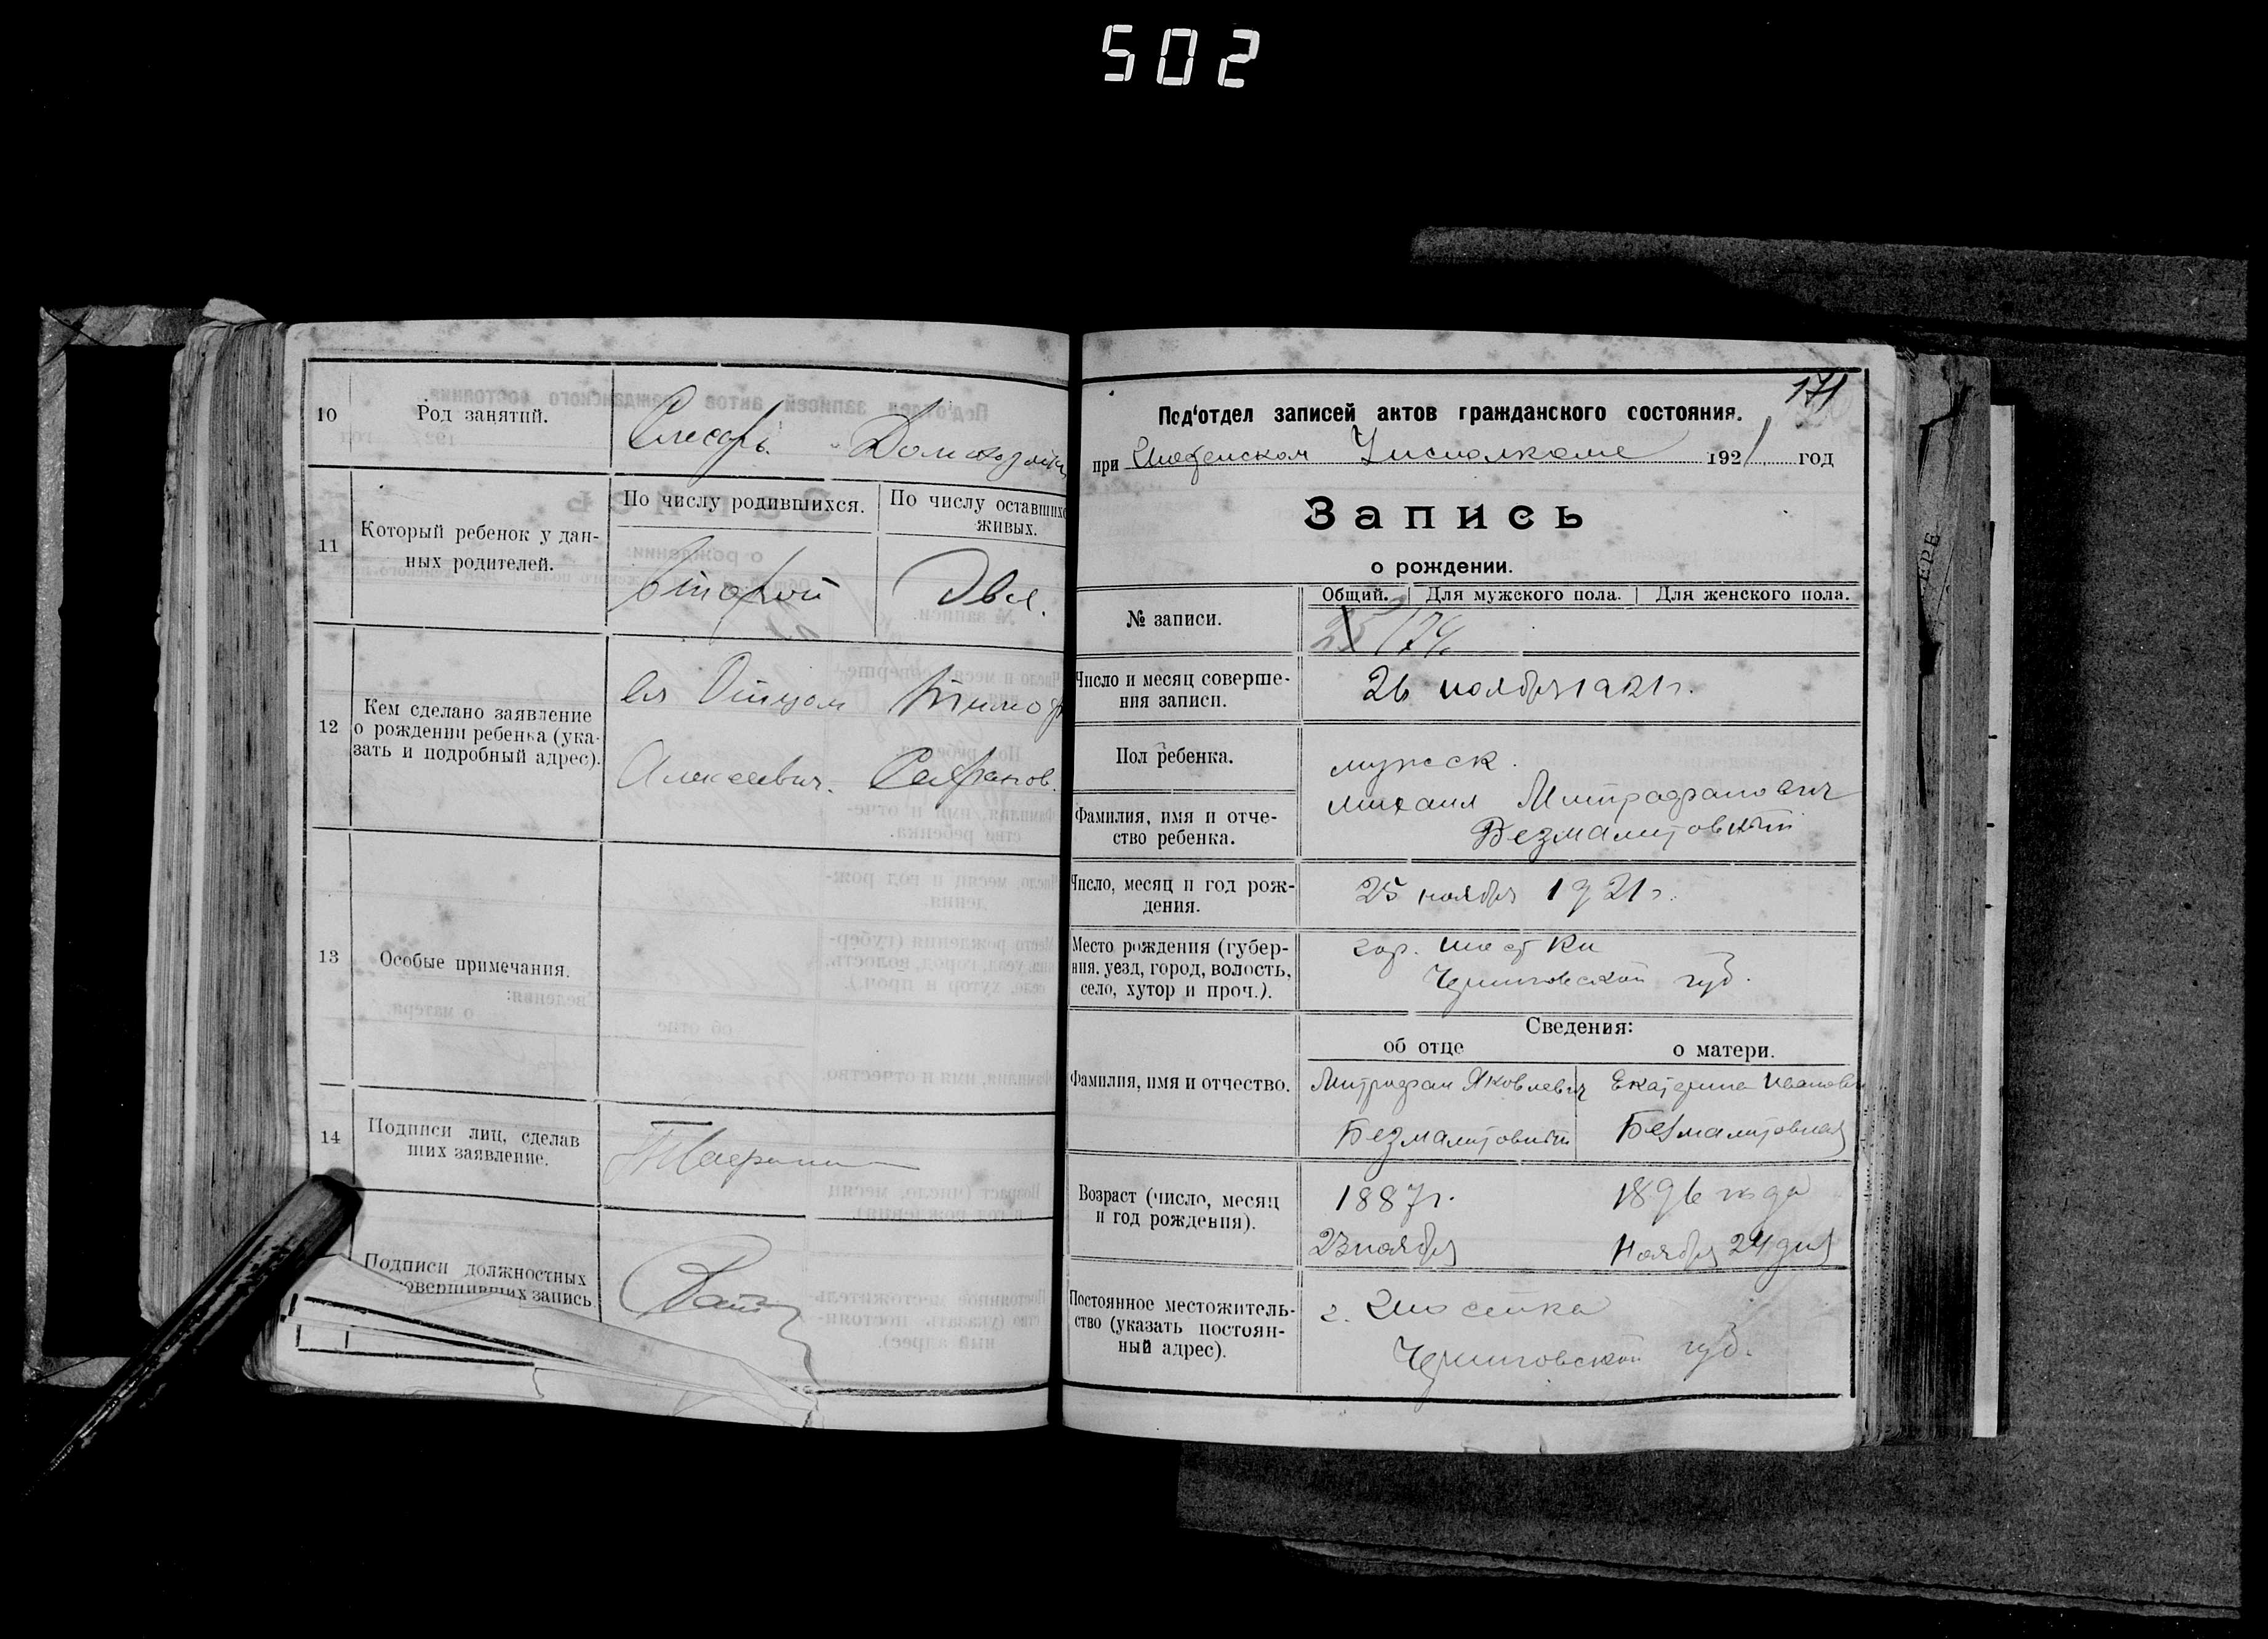 502
10
Род занятий.
Слесарь.
11
Который ребенок у дан-
ных родителей.
По числу родившихся.
По числу оставшихс
живых.
Второй
Два.
12
Кем сделано заявление
о рождении ребенка (ука-
зать и подробный адрес).
Отцом
Алексеевич. Сафранов.
13
Особые примечания.
14
Подписи лиц, сделав
ших заявление.
Подписи должностных
овершивших запись
171
Под'отдел записей актов гражданского состояния.
при Шостенском Уисполкоме 1921 год
Запись
о рождении.
№ записи.
Общий. Для мужского пола. Для женского пола.
174
Число и месяц соверше-
ния записи.
26 ноября 1921 г.
Пол ребенка.
мужск.
Фамилия, имя и отче-
ство ребенка.
михаил Митрофанович
Безмалитовный
Число, месяц и год рож-
дения.
25 ноября 1921 г.
Место рождения (губер-
ния, уезд, город, волость,
село, хутор и проч.).
гор. Шостки
Черниговской губ.
Сведения:
об отце
о матери.
Фамилия, имя и отчество.
Митрофан Яковлевич
Безмалитовный
Екатерина Ивановн
Безмалитовная
Возраст (число, месяц
и год рождения).
1887 г.
23 ноября
1896 года
Ноября 24 дня
Постоянное местожитель-
ство (указать постоян-
ный адрес).
г. Шостка
Черниговской губ.